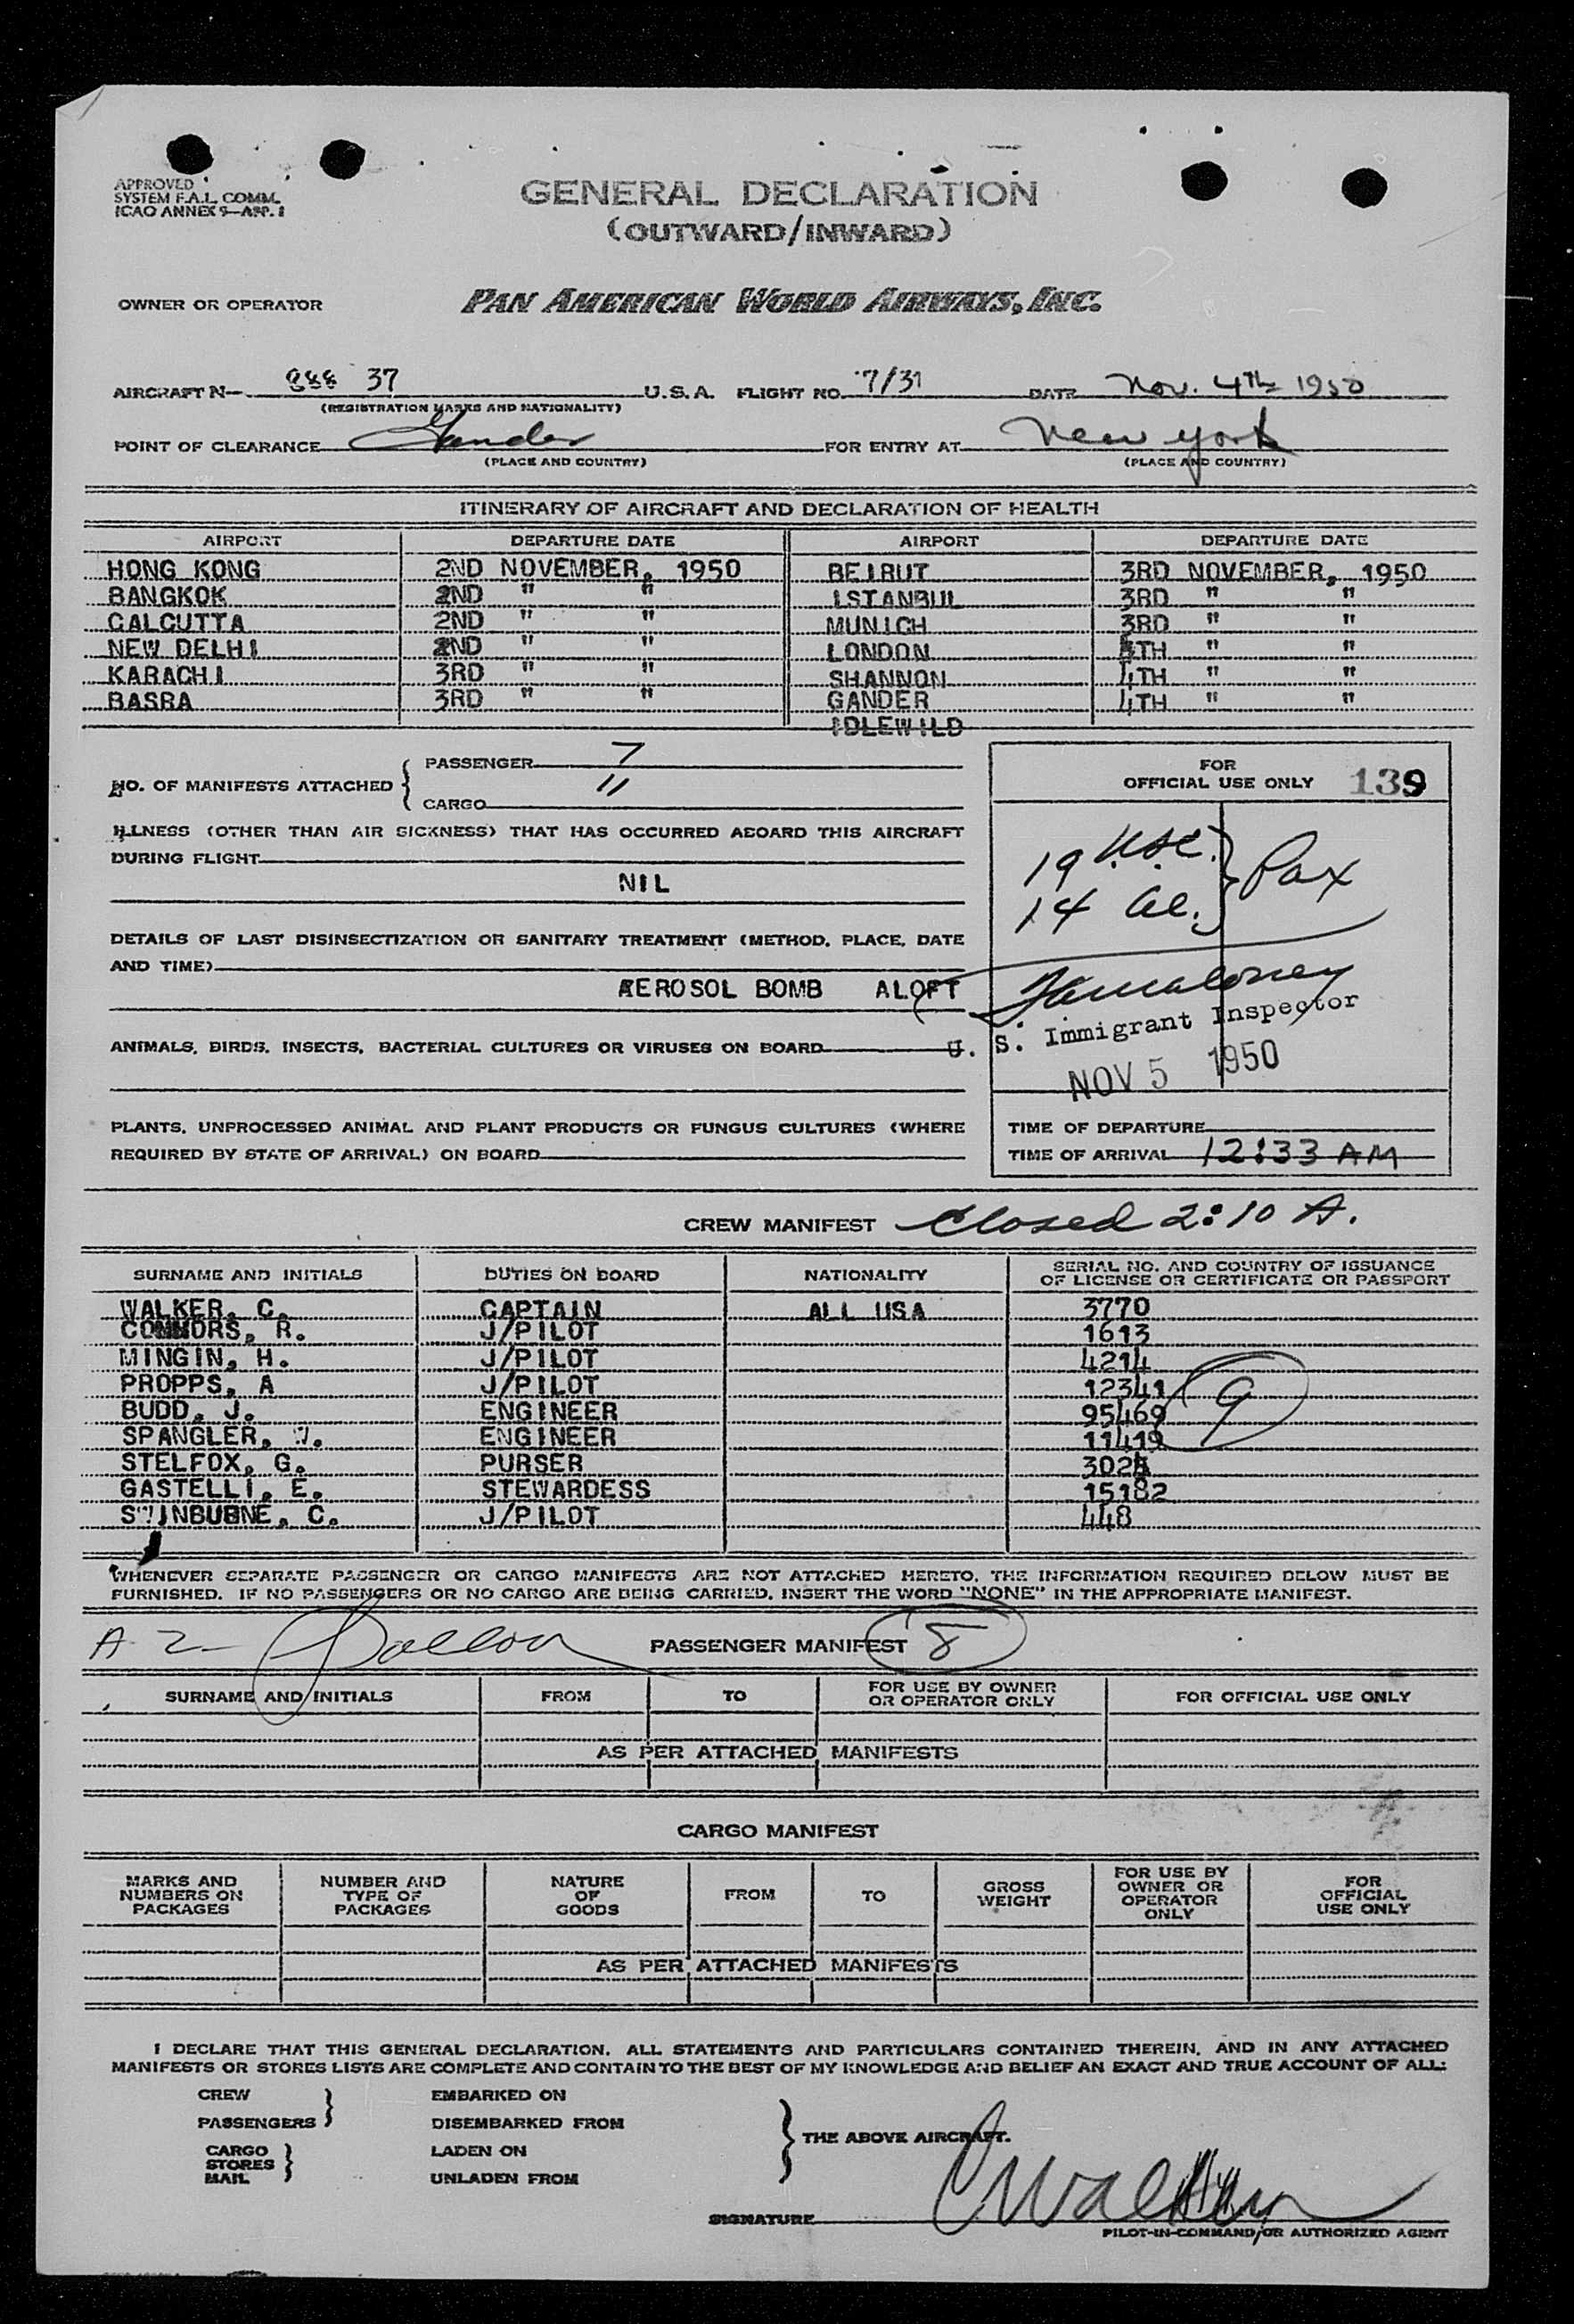 APPROVED
SYSTEM F.A.L. COMM.
ICAO ANNEX 9—APP. 1
GENERAL DECLARATION
(OUTWARD/INWARD)
OWNER OR OPERATOR PAN AMERICAN WORLD AIRWAYS, INC.
AIRCRAFT N— 37 U.S.A. FLIGHT NO. 7/31 DATE Nov. 4th 1950
(REGISTRATION MARKS AND NATIONALITY)
POINT OF CLEARANCE Gander FOR ENTRY AT New York
(PLACE AND COUNTRY) (PLACE AND COUNTRY)
ITINERARY OF AIRCRAFT AND DECLARATION OF HEALTH
AIRPORT DEPARTURE DATE AIRPORT DEPARTURE DATE
HONG KONG 2ND NOVEMBER, 1950 BEIRUT 3RD NOVEMBER, 1950
BANGKOK 2ND " " ISTANBUL 3RD " "
CALCUTTA 2ND " " MUNICH 3RD " "
NEW DELHI 2ND " " LONDON 4TH " "
KARACHI 3RD " " SHANNON 4TH " "
BASRA 3RD " " GANDER 4TH " "
IDLEWILD
NO. OF MANIFESTS ATTACHED { PASSENGER 7
CARGO 11
FOR
OFFICIAL USE ONLY 139
ILLNESS (OTHER THAN AIR SICKNESS) THAT HAS OCCURRED ABOARD THIS AIRCRAFT
DURING FLIGHT
NIL
19 USC. } Pax
14 al.
DETAILS OF LAST DISINSECTIZATION OR SANITARY TREATMENT (METHOD, PLACE, DATE
AND TIME)
AEROSOL BOMB ALOFT
U. S. Immigrant Inspector
NOV 5 1950
ANIMALS, BIRDS, INSECTS, BACTERIAL CULTURES OR VIRUSES ON BOARD
PLANTS, UNPROCESSED ANIMAL AND PLANT PRODUCTS OR FUNGUS CULTURES (WHERE
REQUIRED BY STATE OF ARRIVAL) ON BOARD
TIME OF DEPARTURE
TIME OF ARRIVAL 12:33 AM
CREW MANIFEST Closed 2:10 A.
SURNAME AND INITIALS DUTIES ON BOARD NATIONALITY SERIAL NO. AND COUNTRY OF ISSUANCE
OF LICENSE OR CERTIFICATE OR PASSPORT
WALKER, C. CAPTAIN ALL USA 3770
CONNORS, R. J/PILOT 1613
MINGIN, H. J/PILOT 4214
PROPPS, A J/PILOT 12341
BUDD, J. ENGINEER 95469
SPANGLER, W. ENGINEER 11419
9
STELFOX, G. PURSER
GASTELLI, E. STEWARDESS 15182
SWINBURNE, C. J/PILOT 448
WHENEVER SEPARATE PASSENGER OR CARGO MANIFESTS ARE NOT ATTACHED HERETO, THE INFORMATION REQUIRED BELOW MUST BE
FURNISHED. IF NO PASSENGERS OR NO CARGO ARE BEING CARRIED, INSERT THE WORD "NONE" IN THE APPROPRIATE MANIFEST.
A 2 PASSENGER MANIFEST 8
SURNAME AND INITIALS FROM TO FOR USE BY OWNER
OR OPERATOR ONLY FOR OFFICIAL USE ONLY
AS PER ATTACHED MANIFESTS
CARGO MANIFEST
MARKS AND
NUMBERS ON
PACKAGES NUMBER AND
TYPE OF
PACKAGES NATURE
OF
GOODS FROM TO GROSS
WEIGHT FOR USE BY
OWNER OR
OPERATOR
ONLY FOR
OFFICIAL
USE ONLY
AS PER ATTACHED MANIFESTS
I DECLARE THAT THIS GENERAL DECLARATION, ALL STATEMENTS AND PARTICULARS CONTAINED THEREIN, AND IN ANY ATTACHED
MANIFESTS OR STORES LISTS ARE COMPLETE AND CONTAIN TO THE BEST OF MY KNOWLEDGE AND BELIEF AN EXACT AND TRUE ACCOUNT OF ALL:
CREW EMBARKED ON
PASSENGERS } DISEMBARKED FROM
CARGO LADEN ON } THE ABOVE AIRCRAFT.
STORES
MAIL } UNLADEN FROM
SIGNATURE CWalker
PILOT-IN-COMMAND, OR AUTHORIZED AGENT